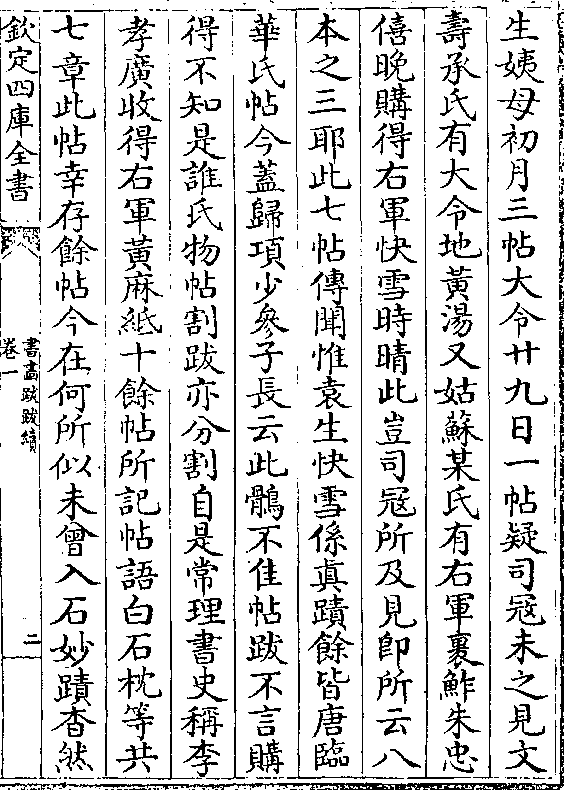 生姨母初月三帖大令廿九日一帖疑司冦未之見文
壽承氏有大令地黃湯又姑蘇某氏有右軍裹鮓朱忠
僖晚購得右軍快雪時晴此豈司冦所及見卽所云八
本之三耶此七帖傳聞惟袁生快雪係真蹟餘皆唐臨
華氏帖今蓋歸項少參子長云此鶻不佳帖跋不言購
得不知是誰氏物帖割跋亦分割自是常理書史稱李
孝廣收得右軍黃麻紙十餘帖所記帖語白石枕等共
七章此帖幸存餘帖今在何所似未曾入石妙蹟杳然
欽定四庫全書
書畫跋跋續
卷一
二